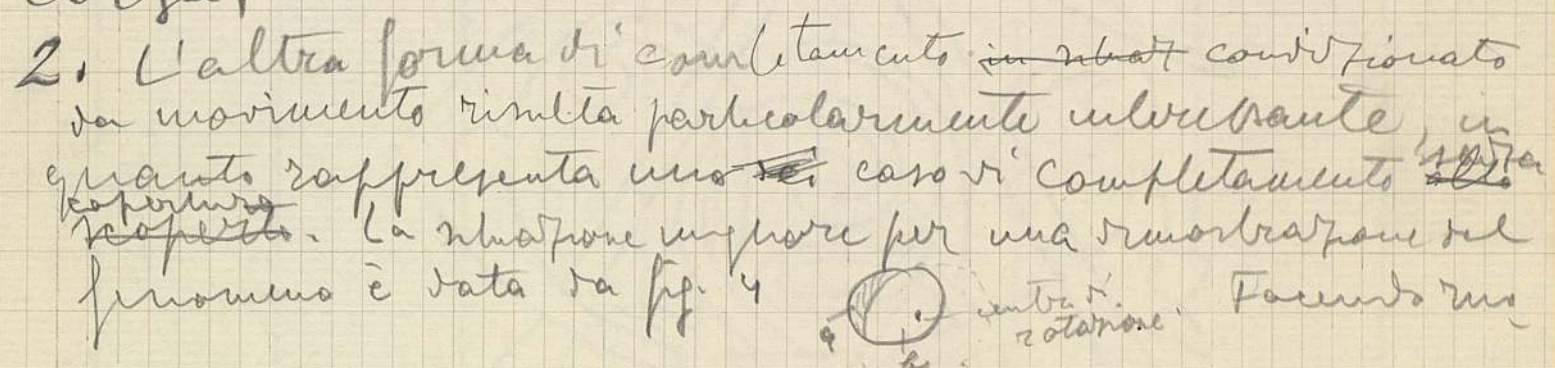 2. L'altra forma di completamento in situaz condizionato
da movimento risulta particolarmente interessante, in
quanto rappresenta uno dei caso di completamento senza
copertura
scoperto. La situazione migliore per una dimostrazione del
fenomeno è data da fig. 4 centro di Facendo ruo
rotazione.
a b